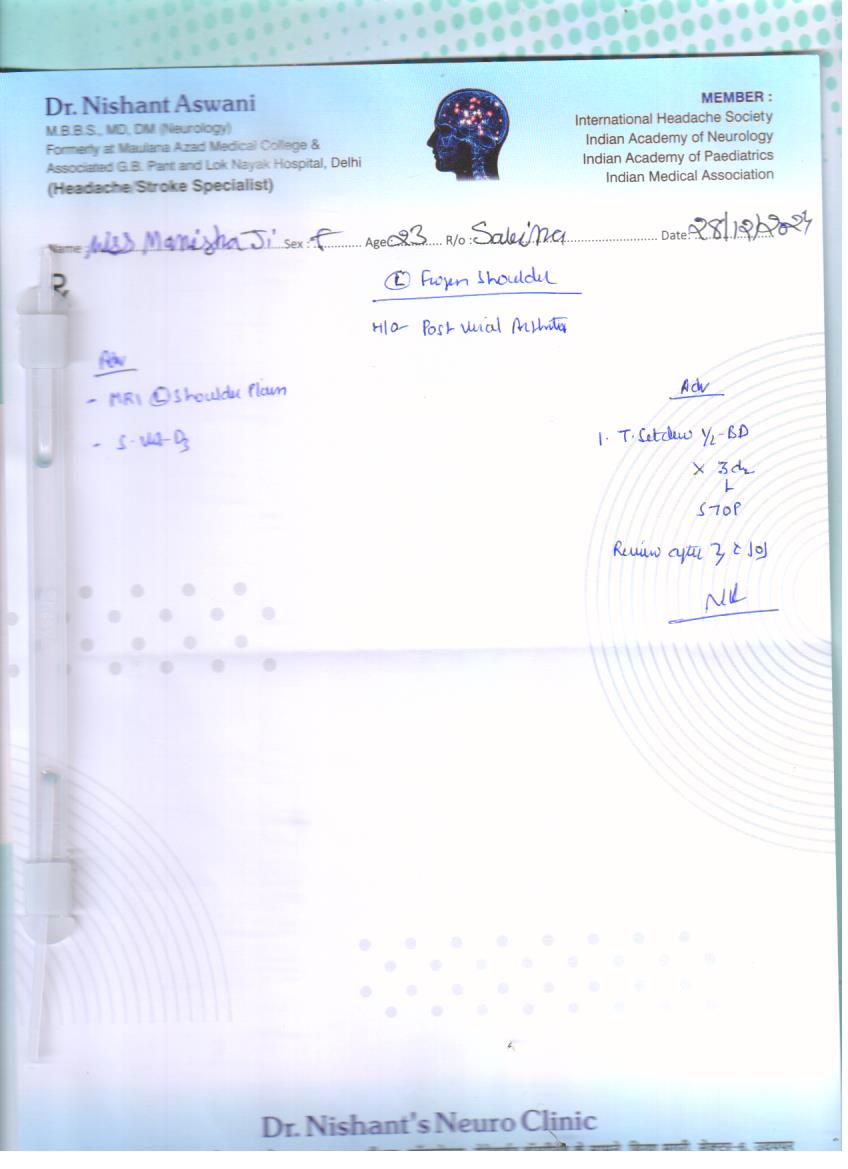 Dr. Nishant Aswani
M.B.B.S., MD, DM (Neurology)
Formerly at Maulana Azad Medical College &
Associated G.B. Pant and Lok Nayak Hospital, Delhi
(Headache/Stroke Specialist)
MEMBER :
International Headache Society
Indian Academy of Neurology
Indian Academy of Paediatrics
Indian Medical Association
Name : Miss Manisha Ji Sex : F Age 23 R/o : Date: 28/12/2024
Ⓛ Frozen Shoulder
H/O- Post viral Arthritis
Adv
- MRI Ⓛ Shoulder Plain
- S. Vit-D3
Adv
1. T. 1/2-BD
x 3d
STOP
Review after
Dr. Nishant's Neuro Clinic